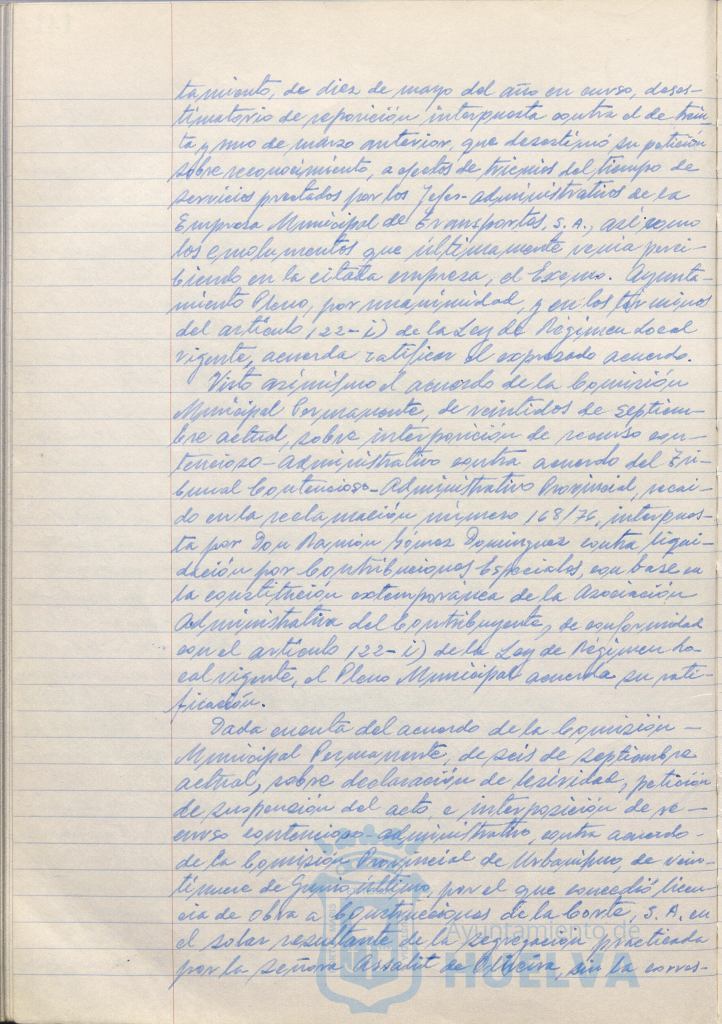 tamiento, de diez de mayo del año en curso, deses-
timatorio de reposición interpuesta contra el de trein-
ta y uno de marzo anterior, que desestimó su petición
sobre reconocimiento, a efectos de trienios del tiempo de
servicios prestados por los Jefes-administrativos de la
Empresa Municipal de Transportes, S.A., así como
los emolumentos que últimamente venia perci-
biendo en la citada empresa, el Excmo. Ayunta-
miento Pleno, por unanimidad, y en los términos
del artículo 122-i) de la Ley de Régimen Local
vigente, acuerda ratificar el expresado acuerdo.
Visto asímismo el acuerdo de la Comisión
Municipal Permanente, de veintidos de septiem-
bre actual, sobre interposición de recurso con-
tencioso-administrativo contra acuerdo del Tri-
bunal Contencioso-Administrativo Provincial, recai-
do en la reclamación número 168/76, interpues-
ta por Don Ramón Gómez Dominguez contra liqui-
dación por Contribuciones Especiales, con base en
la constitución extemporánea de la Asociación
Administrativa del Contribuyente, de conformidad
con el artículo 122-i) de la Ley de Régimen Lo-
cal vigente, el Pleno Municipal acuerda su rati-
ficación.
Dada cuenta del acuerdo de la Comisión -
Municipal Permanente, de seis de septiembre
actual, sobre declaración de lesividad, petición
de suspensión del acto e interposición de re-
curso contencioso-administrativo, contra acuerdo-
de la Comisión Provincial de Urbanismo, de vein-
tinueve de Junio último, por el que concedió licen-
cia de obra a Construcciones de la Corte, S.A. en
el solar resultante de la segregación practicada
por la señora Assalit de Oliveira, sin la corres-
Ayuntamiento de
HUELVA